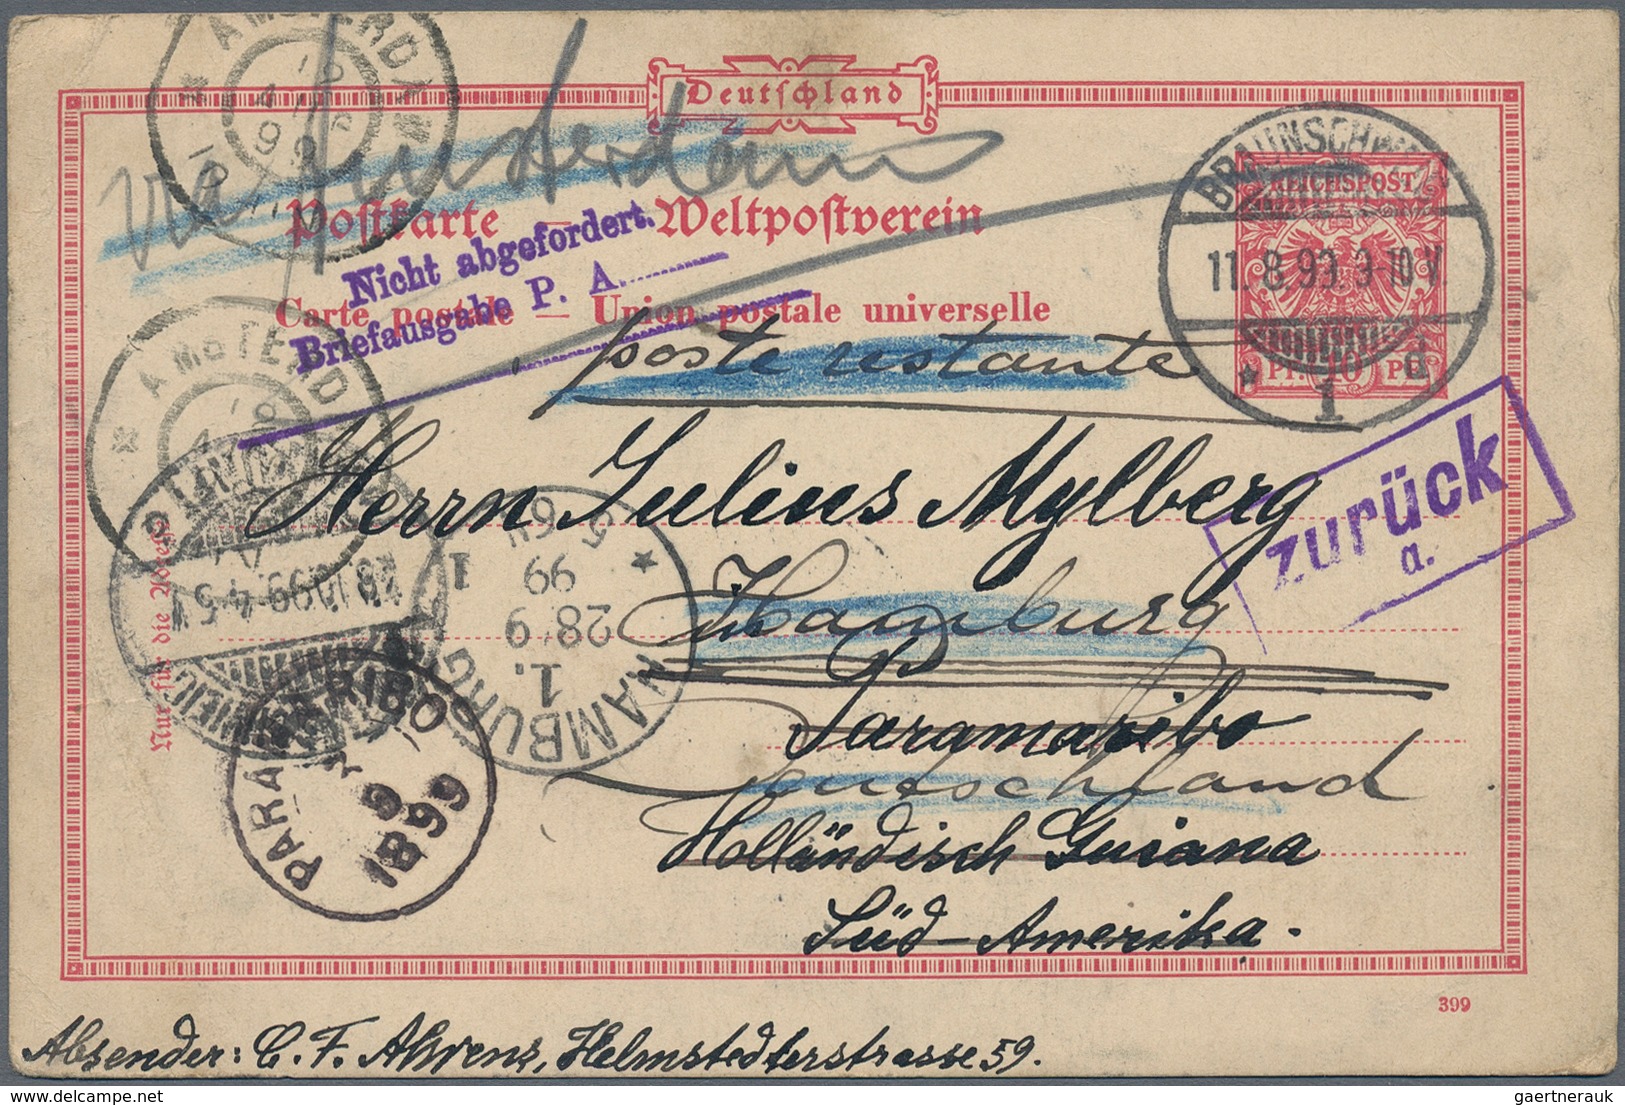 AMSTERDAM
Deutschland
via Amsterdam
Postkarte — Weltpostverein
Carte postale — Union postale universelle
Nicht abgefordert.
Briefausgabe P. A.
BRAUNSCHWEIG
REICHSPOST
11.8.99.9-10 V
PF. 10 PF.
1 d
poste restante
AMSTERDAM
zurück
a.
Herrn Julius Mylberg
Hamburg
Paramaribo
Deutschland
Holländisch Guiana
Süd-Amerika.
Nur für die Adresse
HAMBURG
1.
28 9
99
1
PARAMARIBO
9
1899
399
Absender: C. F. Ahrens, Helmstedterstrasse 59.
gaertnerauk